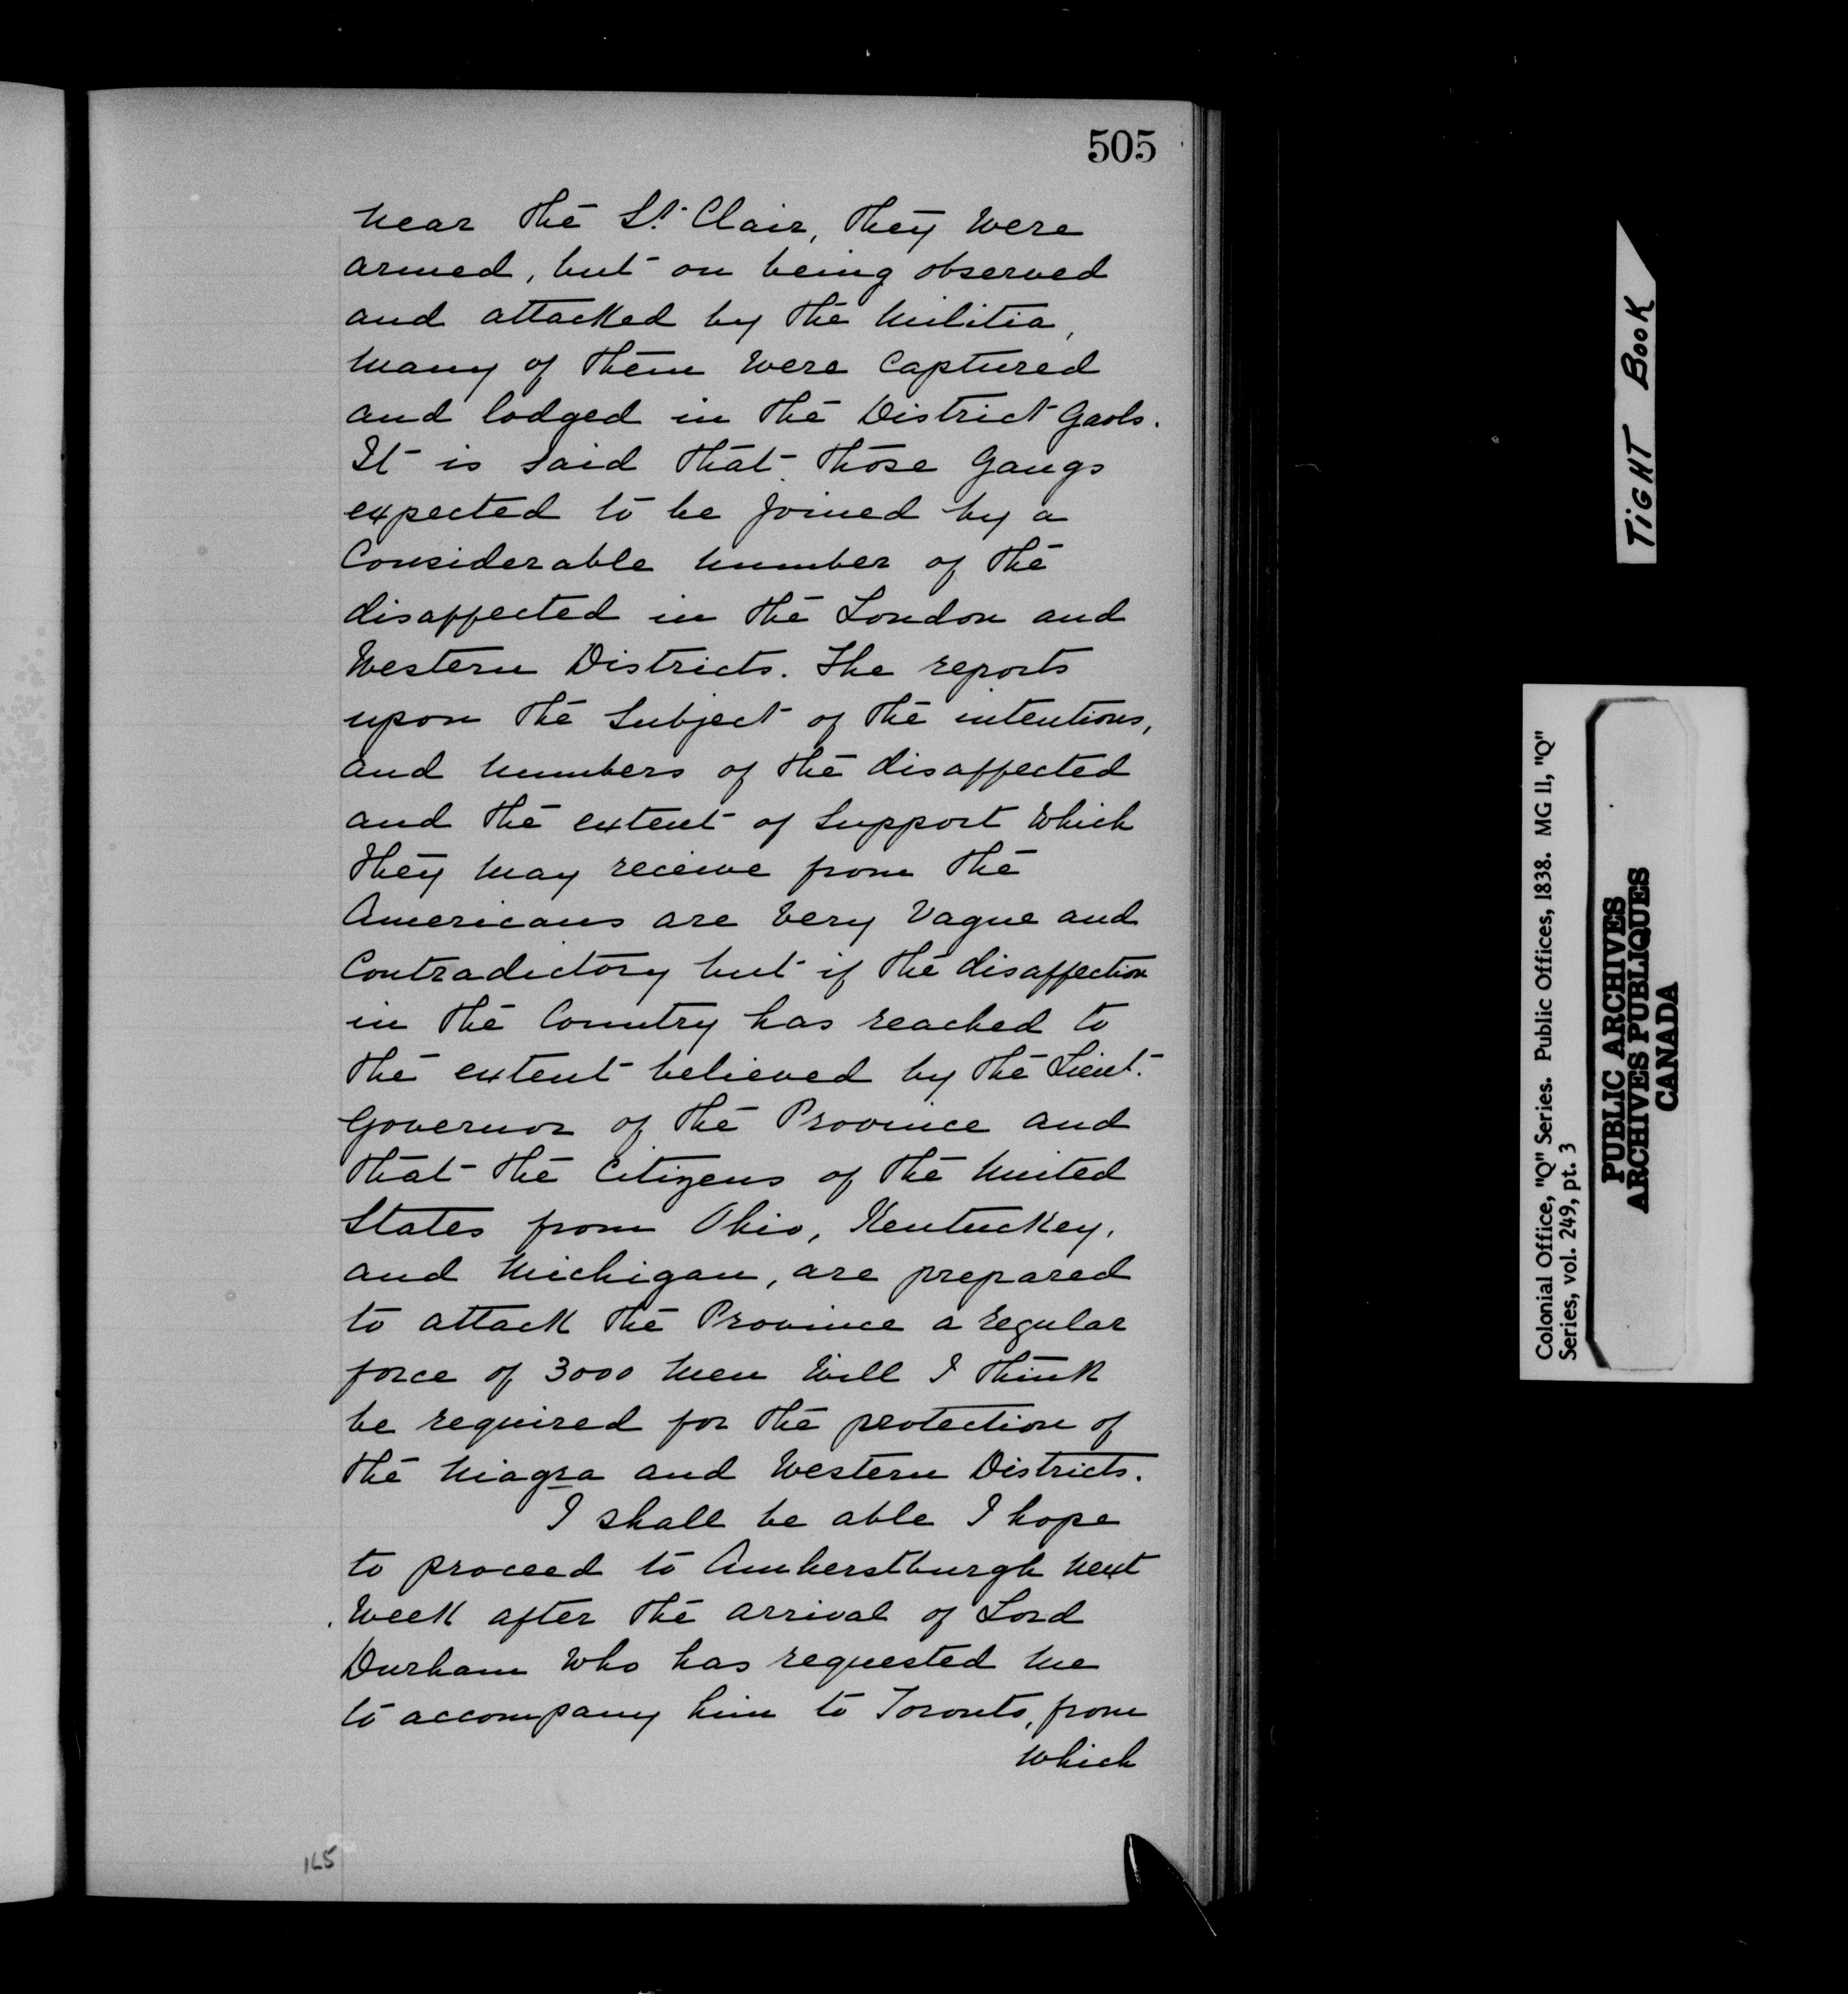 505
near the St. Clair, they were
armed, but on being observed
and attacked by the Militia,
Many of them were Captured
and lodged in the District Gaols.
It is said that those Gangs
expected to be joined by a
Considerable number of the
disaffected in the London and
Western Districts. The reports
upon the Subject of the intentions,
and numbers of the disaffected
and the extent of support which
they may receive from the
Americans are very vague and
Contradictory but if the disaffection
in the Country has reached to
the extent believed by the Lieut.
Governor of the Province and
that the Citizens of the United
States from Ohio, Kentuckey,
and Michigan, are prepared
to attack the Province a regular
force of 3000 Men will I think
be required for the protection of
the Niagra and Western Districts.
I shall be able I hope
to proceed to Amherstburgh next
week after the arrival of Lord
Durham who has requested me
to accompany him to Toronto, from
which
165
TiGHT BOOK
Colonial Office, "Q" Series. Public Offices, 1838. MG 11, "Q"
Series, vol. 249, pt. 3
PUBLIC ARCHIVES
ARCHIVES PUBLIQUES
CANADA